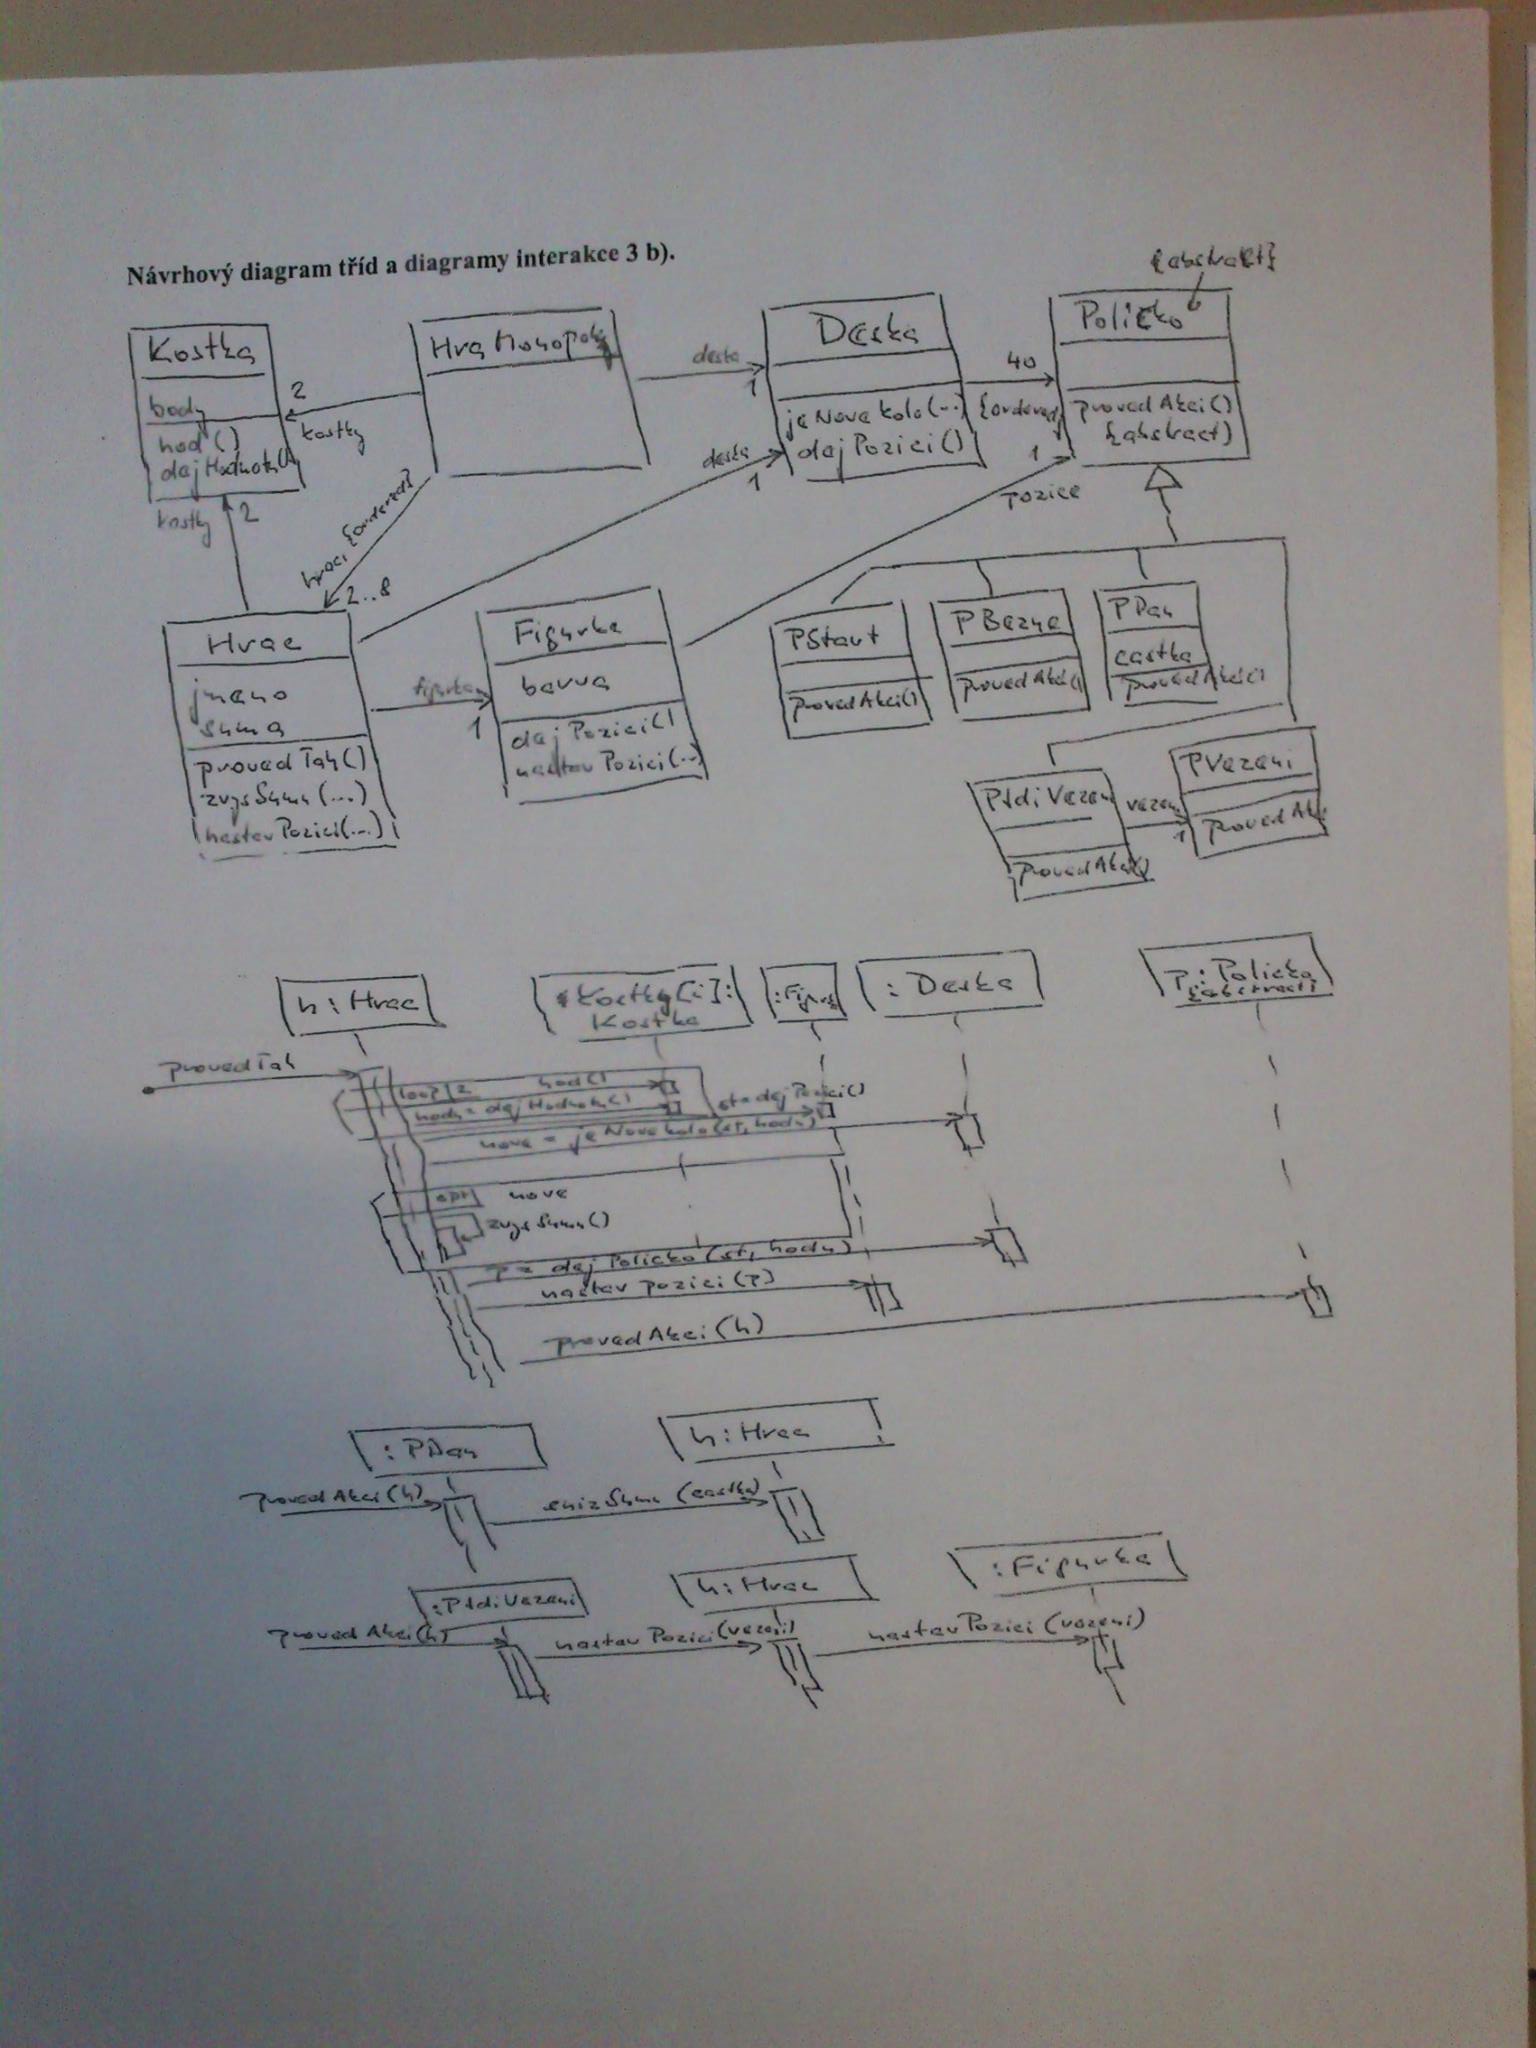 Návrhový diagram tříd a diagramy interakce 3 b).
{abstract}
Kostka
body
hod()
dejHodnotu()
Hra Monopoly
Deska
jeNoveKolo(...)
dejPozici()
Policko
provedAkci()
{abstract}
2
kostky
deska
1
40
{ordered}
kostky
2
hraci {ordered}
2..8
deska
1
1
pozice
Hrac
jmeno
suma
provedTah()
zvysSumu(...)
nastavPozici(...)
figurka
1
Figurka
barva
dejPozici()
nastavPozici(...)
PStart
provedAkci()
PBezne
provedAkci()
PDan
castka
provedAkci()
PJdiVezeni
provedAkci()
vezeni
1
PVezeni
provedAkci
h:Hrac
kostky[i]:
Kostka
:Figurka
:Deska
p:Policko
{abstract}
provedTah
loop 2
hod()
hodn = dejHodnotu()
st = dejPozici()
nove = jeNoveKolo(st, hodn)
opt
nove
zvysSumu()
p = dejPolicko(st, hodn)
nastavpozici(p)
provedAkci(h)
:PDan
h:Hrac
provedAkci(h)
snizSumu(castka)
:PJdiVezeni
h:Hrac
:Figurka
provedAkci(h)
nastavPozici(vezeni)
nastavPozici(vezeni)